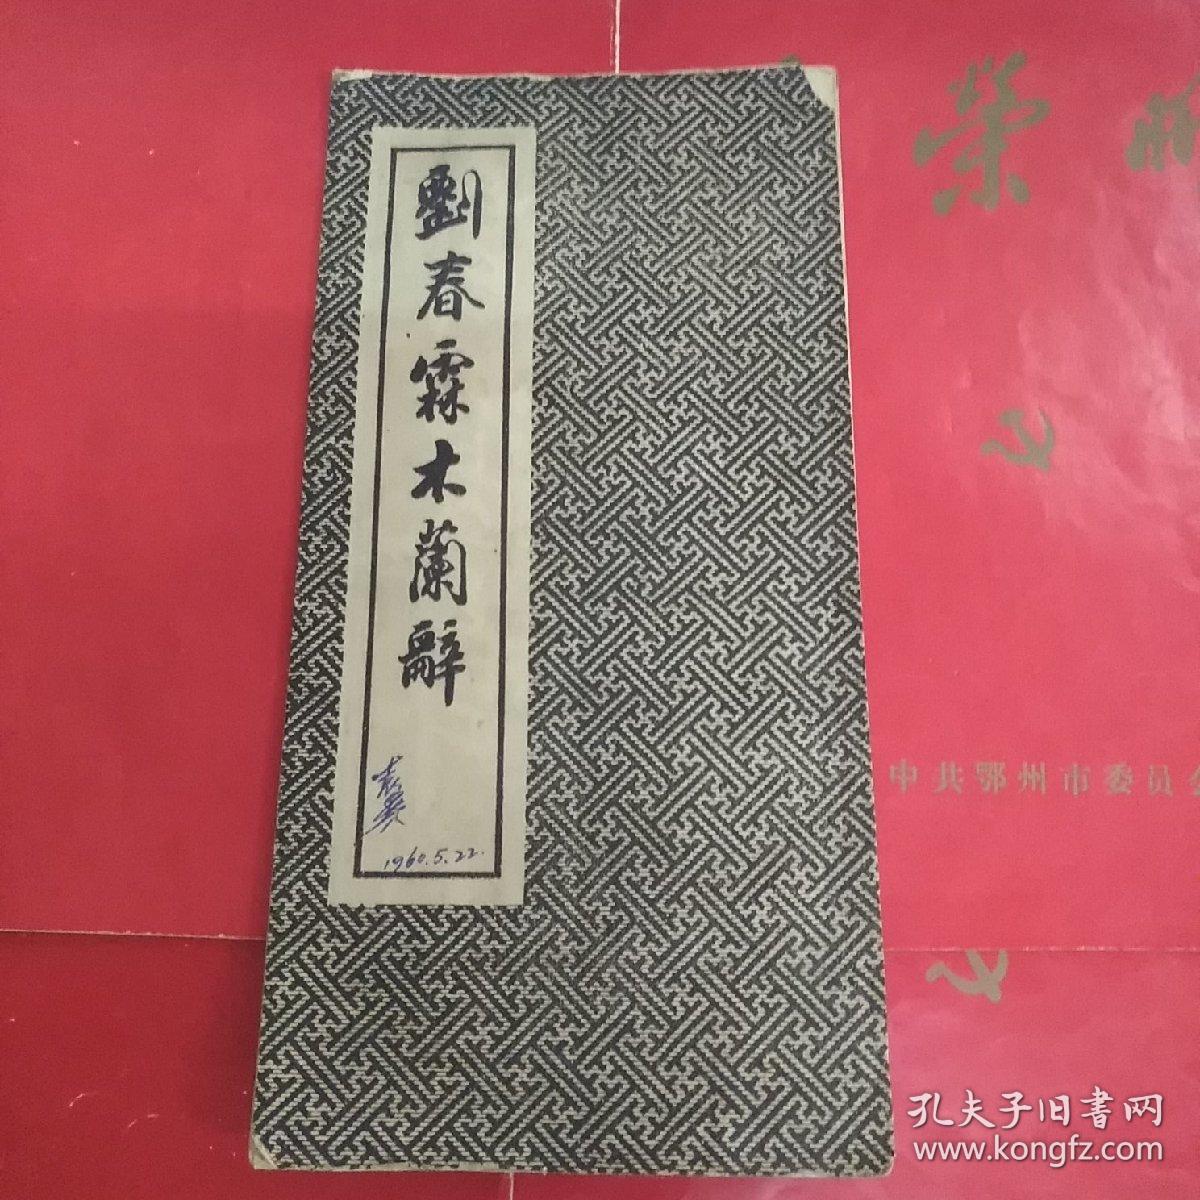 劉春霖木蘭辭
1960.5.22.
榮
中共鄂州市委员会
孔夫子旧書网
www.kongfz.com